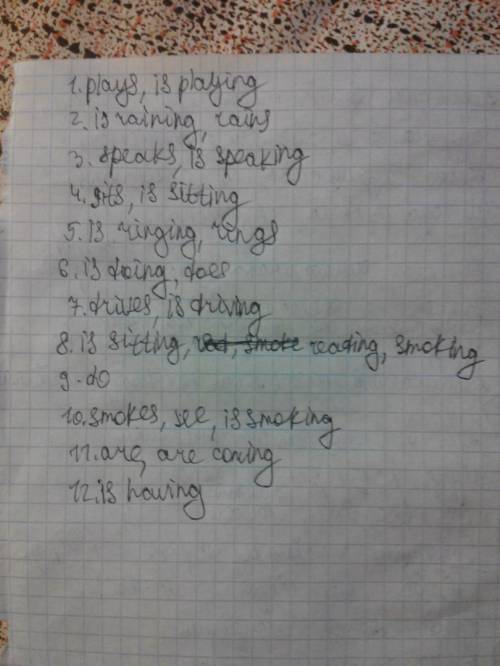 1. plays, is playing
2. is raining, rains
3. speaks, is speaking
4. sits, is sitting
5. is ringing, rings
6. is doing, does
7. drives, is driving
8. is sitting, red, smoke reading, smoking
9. do
10. smokes, see, is smoking
11. are, are coming
12. is having